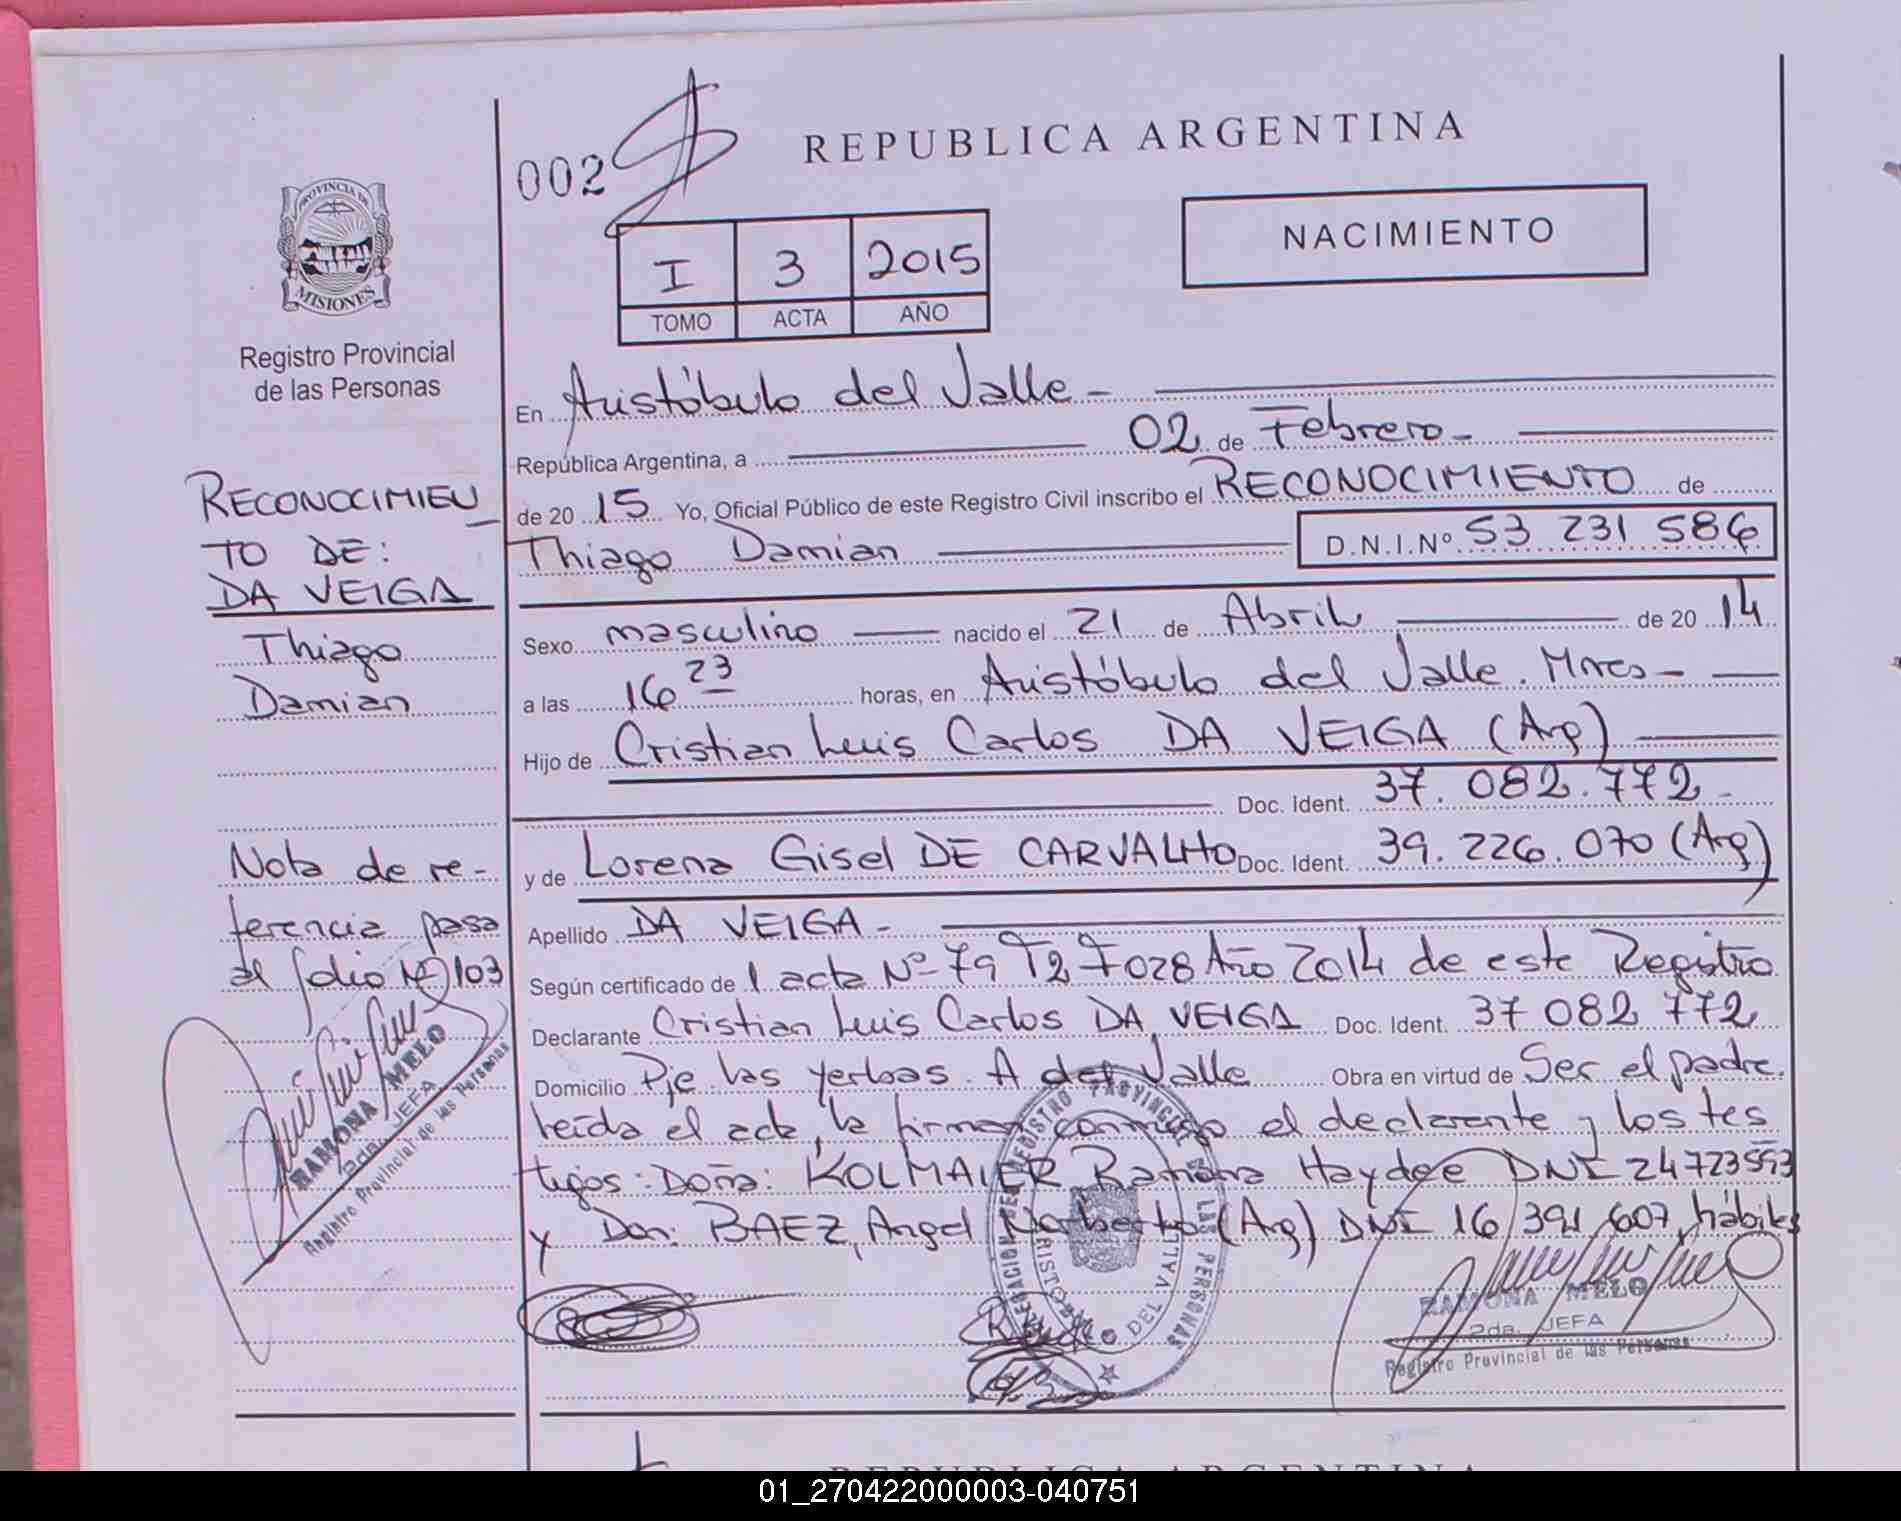 002
REPUBLICA ARGENTINA
PROVINCIA DE
MISIONES
NACIMIENTO
I 3 2015
TOMO ACTA AÑO
Registro Provincial
de las Personas
En Aristóbulo del Valle -
República Argentina, a 02 de Febrero -
de 20 15 Yo, Oficial Público de este Registro Civil inscribo el RECONOCIMIENTO de
Thiago Damian D.N.I.Nº 53 231 586
Sexo masculino nacido el 21 de Abril de 20 14
a las 16 23 horas, en Aristóbulo del Valle. Mnes -
Hijo de Cristian Luis Carlos DA VEIGA (Arg)
Doc. Ident. 37.082.772 -
y de Lorena Gisel DE CARVALHO Doc. Ident. 39.226.070 (Arg)
Apellido DA VEIGA -
Según certificado de 1 acta Nº 79 T2 F028 Año 2014 de este Registro
Declarante Cristian Luis Carlos DA VEIGA Doc. Ident. 37 082 772
Domicilio Pje las yerbas. A del Valle Obra en virtud de Ser el padre.
leída el acta, la firman conmigo el declarante y los tes
tigos: Doña: KOLMAIER Ramona Haydee DNI 24 723 553
y Don: BAEZ, Angel Norberto (Arg) DNI 16 391 607, hábiles
RECONOCIMIEN
TO DE:
DA VEIGA
Thiago
Damian
Nota de re-
ferencia pasa
al folio Nº 103
RAMONA MELO
2da. JEFA
Registro Provincial de las Personas
REGISTRO PROVINCIAL DE LAS PERSONAS
DEL VALLE
RAMONA MELO
2da. JEFA
Registro Provincial de las Personas
REPUBLICA ARGENTINA
01_270422000003-040751